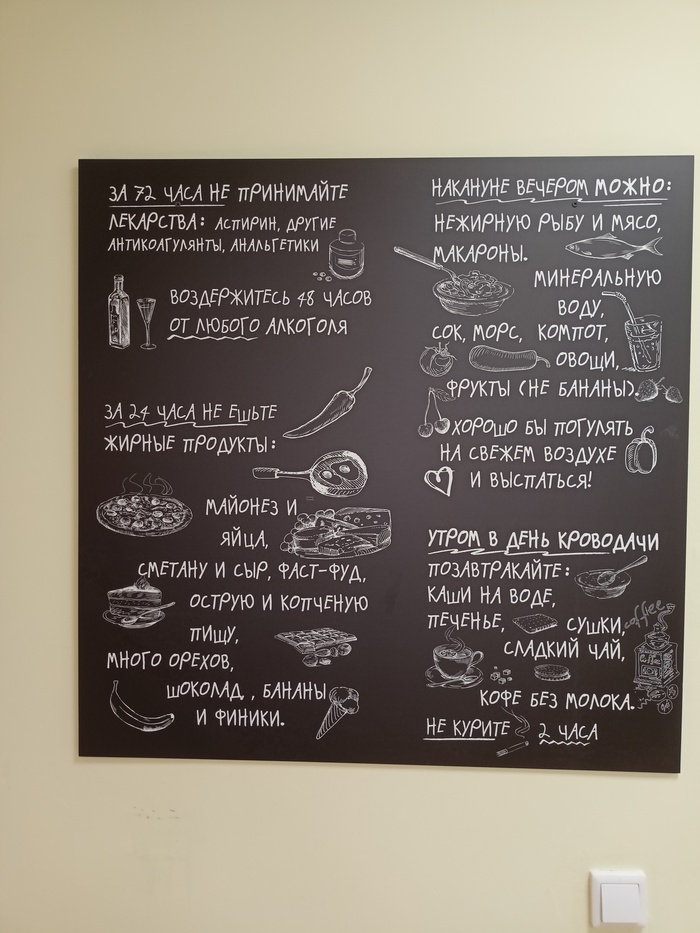 ЗА 72 ЧАСА НЕ ПРИНИМАЙТЕ
ЛЕКАРСТВА: АСПИРИН, ДРУГИЕ
АНТИКОАГУЛЯНТЫ, АНАЛЬГЕТИКИ
ВОЗДЕРЖИТЕСЬ 48 ЧАСОВ
ОТ ЛЮБОГО АЛКОГОЛЯ
ЗА 24 ЧАСА НЕ ЕШЬТЕ
ЖИРНЫЕ ПРОДУКТЫ:
МАЙОНЕЗ И
ЯЙЦА,
СМЕТАНУ И СЫР, ФАСТ-ФУД,
ОСТРУЮ И КОПЧЕНУЮ
ПИЩУ,
МНОГО ОРЕХОВ,
ШОКОЛАД, , БАНАНЫ
И ФИНИКИ.
НАКАНУНЕ ВЕЧЕРОМ МОЖНО:
НЕЖИРНУЮ РЫБУ И МЯСО,
МАКАРОНЫ.
МИНЕРАЛЬНУЮ
ВОДУ,
СОК, МОРС, КОМПОТ,
ОВОЩИ,
ФРУКТЫ (НЕ БАНАНЫ)
ХОРОШО БЫ ПОГУЛЯТЬ
НА СВЕЖЕМ ВОЗДУХЕ
И ВЫСПАТЬСЯ!
УТРОМ В ДЕНЬ КРОВОДАЧИ
ПОЗАВТРАКАЙТЕ:
КАШИ НА ВОДЕ,
ПЕЧЕНЬЕ, СУШКИ,
coffee
СЛАДКИЙ ЧАЙ,
КОФЕ БЕЗ МОЛОКА.
НЕ КУРИТЕ 2 ЧАСА